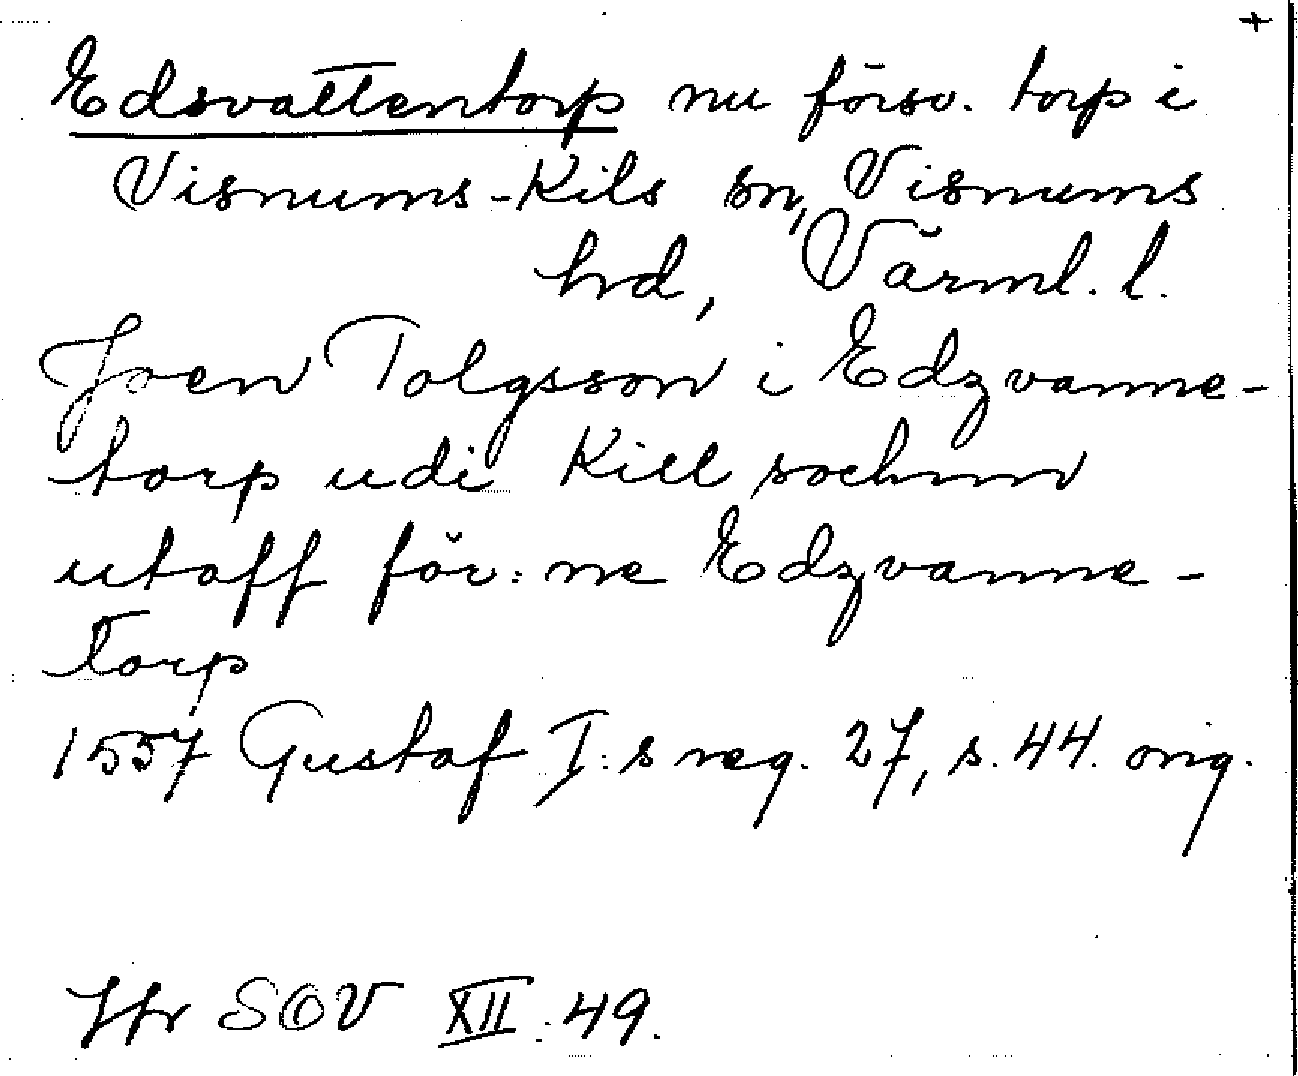 +
Edsvattentorp nu försv. torp i
Visnums-Kils sn, Visnums
hd, Värml. l.
Joen Tolgsson i Edzvanne-
torp udi Kill sochnn
utaff för:ne Edzvanne-
torp
1557 Gustaf I:s reg. 27, s. 44. orig.
Jfr SOV XII:49.